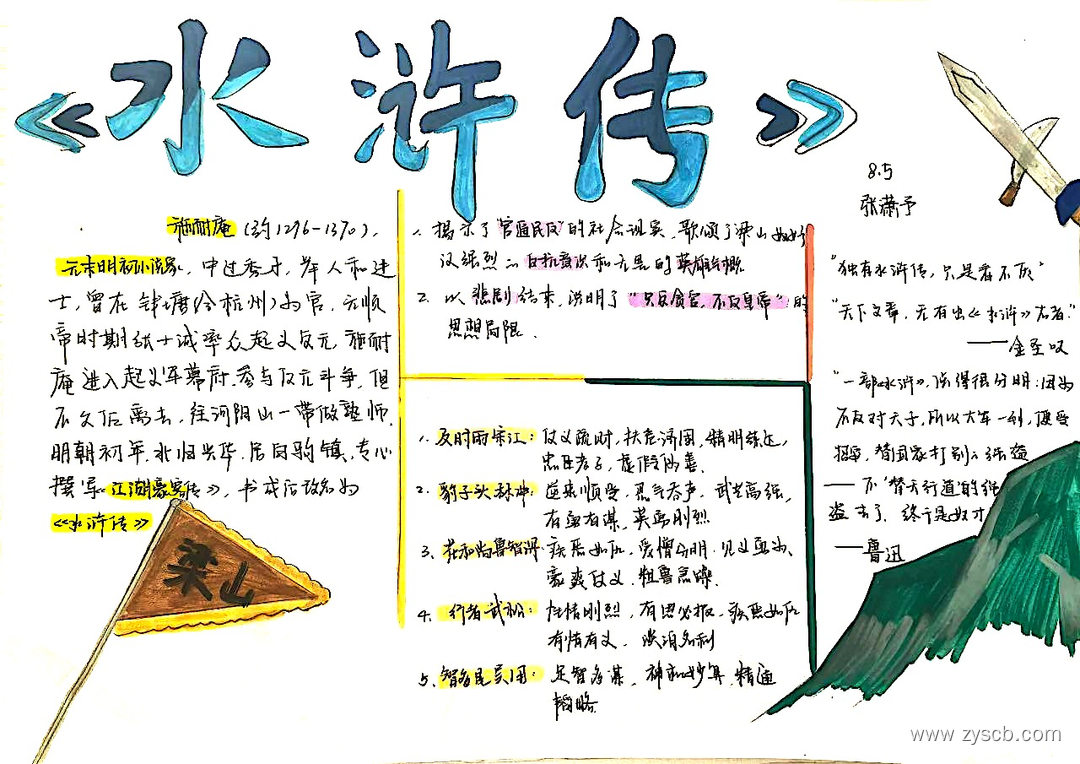 《水浒传》
8.5
张潇予
施耐庵(约1296-1370),
元末明初小说家,中过秀才,举人和进
士,曾在钱塘(今杭州)为官,元顺
帝时期张士诚率众起义反元 施耐
庵进入起义军幕府.参与反元斗争,但
不久后离去,往河阴山一带做塾师.
明朝初年.北归兴华,居白驹镇,专心
撰写《江湖豪客传》,书成后改名为
《水浒传》
1、揭示了"官逼民反"的社会现实,歌颂了梁山好
汉强烈的反抗意识和无畏的英雄气概
2、以悲剧结束,说明了"只反贪官,不反皇帝"的
思想局限.
1、及时雨宋江:仗义疏财,扶危济困,精明练达,
忠臣孝子,虚假伪善.
2、豹子头林冲:逆来顺受,忍气吞声,武艺高强,
有勇有谋,英勇刚烈
3、花和尚鲁智深:疾恶如仇,爱憎分明.见义勇为、
豪爽仗义、粗鲁急躁.
4、行者武松:性情刚烈,有恩必报,疾恶如仇
有情有义、淡泊名利
5、智多星吴用:足智多谋,神机妙算,精通
韬略.
"独有水浒传,只是看不厌"
"天下文章,无有出《水浒》右者."
——金圣叹
"一部《水浒》,说得很分明:因为
不反对天子,所以大军一到,便受
招安,替国家打别的强盗
——不"替天行道"的强
盗去了.终于是奴才
——鲁迅
梁山
www.zyscb.com